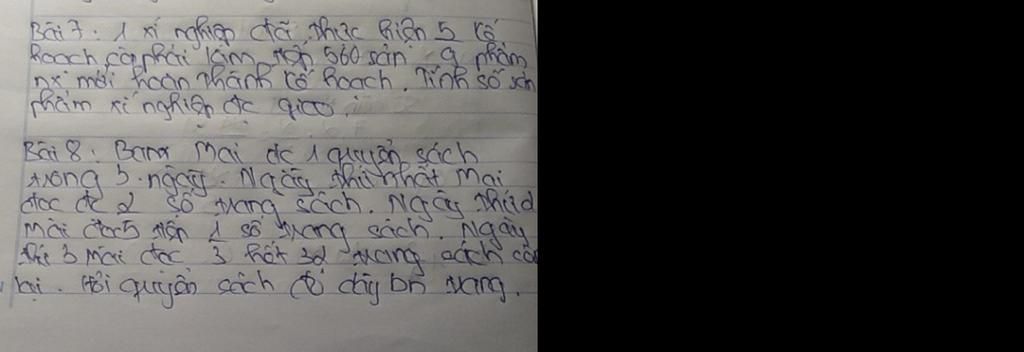 Bài 7: 1 xí nghiệp đã thực hiện 5 kế
hoạch cà phải làm tiến 560 sản 9 phẩm
nx mới hoàn thành kế hoạch. Tính số sản
phẩm xí nghiệp đc giao.
Bài 8: Bạn Mai đc 1 quyển sách
trong 3 ngày. Ngày thứ nhất Mai
đọc đc 2 số trang sách. Ngày thứ 2
Mai đọc 5 tiến 1 số trang sách. Ngày
thứ 3 Mai đọc 3 hết 32 trang sách còn
lại. Hỏi quyển sách đó dày bn trang.